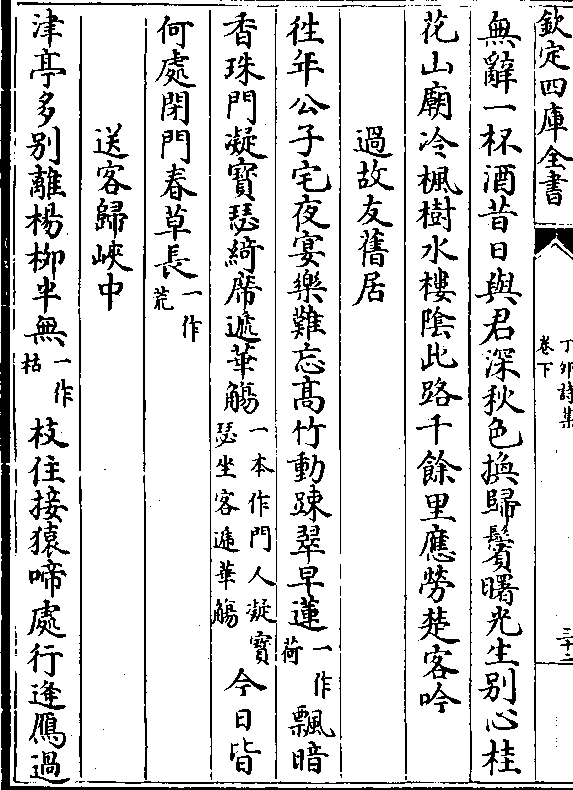 欽定四庫全書
丁卯詩集
卷下
三十二
無辭一杯酒昔日與君深秋色換歸鬢曙光生别心桂
花山廟冷楓樹水樓隂此路千餘里應勞楚客吟
過故友舊居
徃年公子宅夜宴樂難忘髙竹動踈翠早蓮一作荷飄暗
香珠門凝寳瑟綺席遞華觴一本作門人凝寳瑟坐客遞華觴今日皆
何處閉門春草長一作荒
送客歸峽中
津亭多别離楊柳半無一作枯枝住接猿啼處行逢鴈過